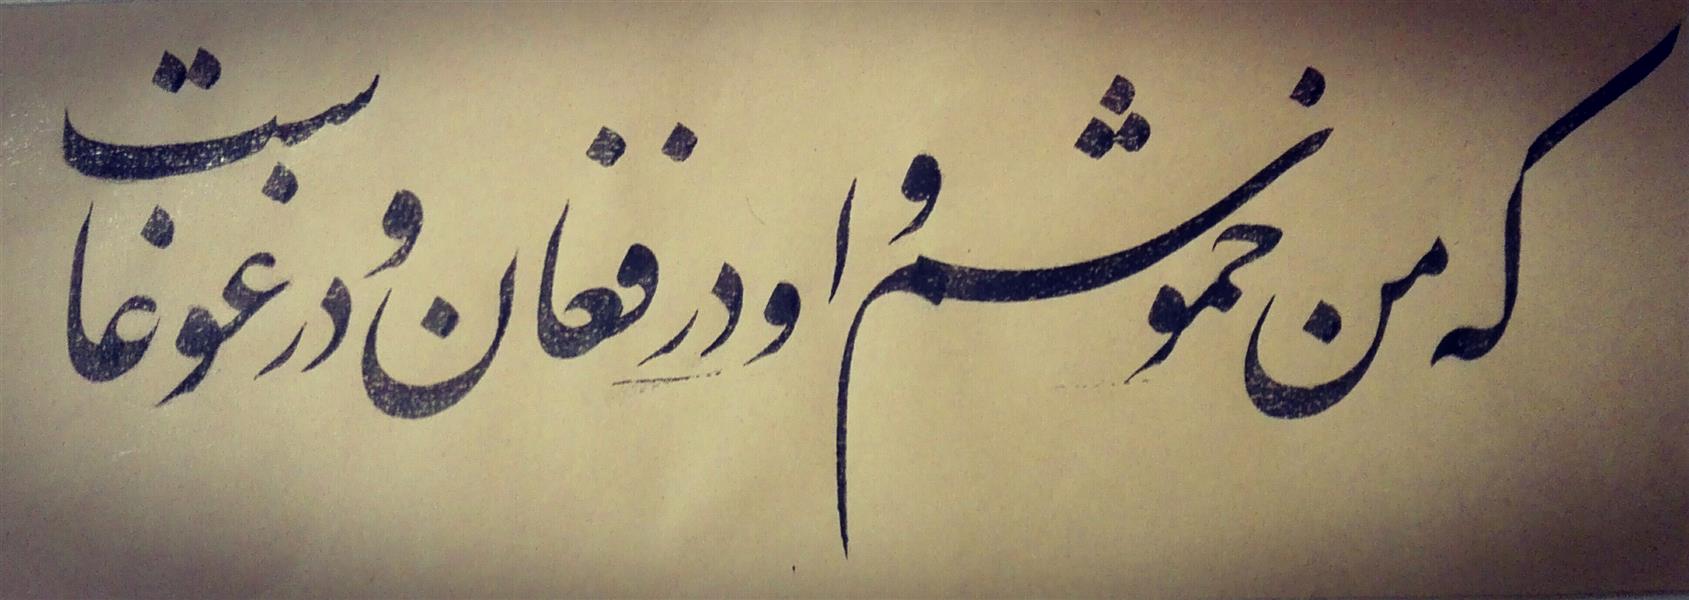 که من خموشم و او در فغان و در غوغاست